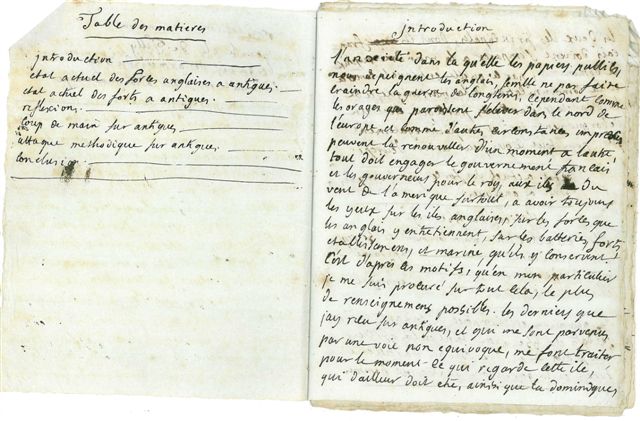 Table des matieres
introduction
etat actuel des forces anglaises a antigues.
etat actuel des forts a antigues.
reflexion.
coup de main sur antigues
attaque methodique sur antigues
conclusion
introduction
l'anxieté dans la qu'elle les papiers publics,
nous depeignent les anglais, semble ne pas faire
craindre la guerre de longtems, cependant comme
les orages qui paroissent dans le nord de
l'europe, et comme d'autres circonstances
peuvent la renouveller d'un moment a l'autre
tout doit engager le gouvernement francais
et les gouverneurs pour le roy, aux iles du
vent de l'amerique surtout, a avoir toujours
les yeux sur les iles anglaises, sur les forces que
les anglais y entretiennent, sur les batteries, forts
etablissemens, et marine, qu'ils y conservent.
C'est d'après ces motifs, qu'en mon particulier
je me suis procuré sur tout cela, le plus
de renseignemens possibles. les derniers que
j'ais recu sur antigues, et qui me sont parvenus
par une voie non equivoque, me font traiter
pour le moment ce qui regarde cette ile,
qui d'ailleur doit etre, ainsi que la dominique,